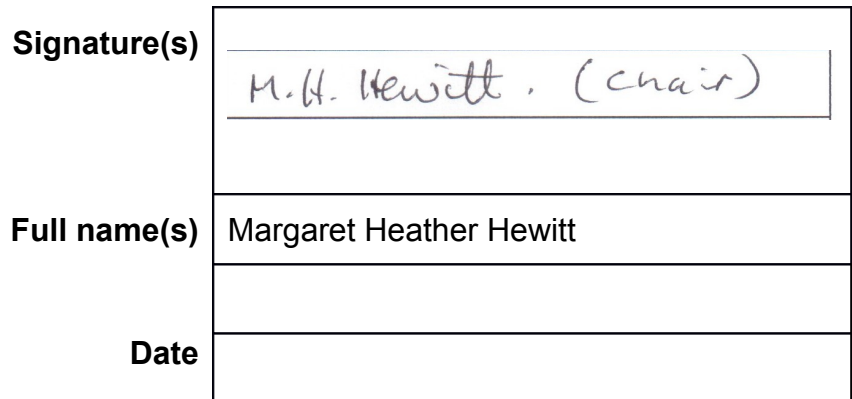 Signature(s)
M.H. Hewitt. (chair)
Full name(s) Margaret Heather Hewitt
Date